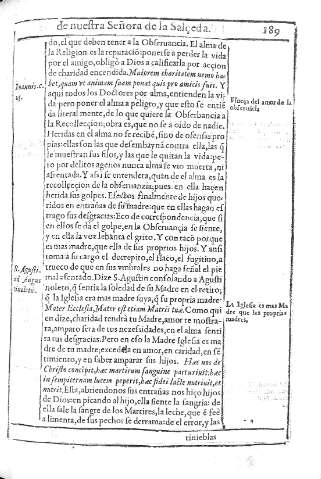 de nuestra Señora de la Salçeda. 189
do, el que deben tener a la Obseruancia. El alma de
la Religion es la reputación: ponerse a perder la vida
por el amigo, obligò a Dios a calificarla por accion
de charidad encendida. Maiorem charitatem nemo ha-
bet, quam vt animam suam ponat quis pro amicis suis. Y
aqui todos los Doctores por alma, entienden la vi-
da pero poner el alma a peligro, y que esto se entiē
da literalmente, de lo que quiere la Obseruancia a
la Recolleccion, obra es, que no se à oido de nadie.
Heridas en el alma no se recibē, sino de ofensas pro
pias: ellas son las que desembaynā contra ella, las q̄
le muestran sus filos, y las que le quitan la vida: pe-
ro por delitos agenos nunca alma se vio muerta, ni
afrentada. Y assi se entenderà, quan de el alma es la
recolleccion de la obseruancia, pues en ella haçen
herida sus golpes. Efectos finalmente de hijos que-
ridos en entrañas de su madre: que en ellas haga estrago
sus desgracias: Eco de correspondencia, que si
en ellos se dà el golpe, en la Obseruancia se siente,
y en ella la voz lebanta el grito. Y con raçò porque
es mas madre, que ella de sus proprios hijos. Y
toma a su cargo el decrepito, el flaco, el fugitiuo, a
trueco de que en sus vmbrales no haga señal el pie
mal asentado. Dize S. Agustin consolando a Agusti
q̄ la Iglesia era mas madre suya, q̄ su propria madre
Mater Ecclesia, Mater est etiam Matris tuæ. Como qui
en dize, charidad tendrà tu Madre, amor te mostra-
ra, amparo serà de tus necesidades, en el alma senti
ra tus desgracias. Pero en eso la Madre Iglesia es ma
dre de tu madre, excedela en amor, en caridad, en sē
timiento, y en saber amparar sus hijos. Hæc nos de
Christo concipit, hæc martirum sanguine parturiuit: hæc
in sempiternum lucem peperit, hæc fidei lacte nutriuit, et
nutrit. Ella, abriendonos sus entrañas nos hiço hijos
de Dios: en picando al hijo, ella siente la sangria: de
ella sale la sangre de los Martires, la leche, que è sée
a limenta, de sus pechos se derrama: de el error, y las
tinieblas
Ioannis. c.
15.
S. Agusti.
Fineça del amor de la
obseruācia
La Iglesia es mas Ma
dre que las proprias
madres.